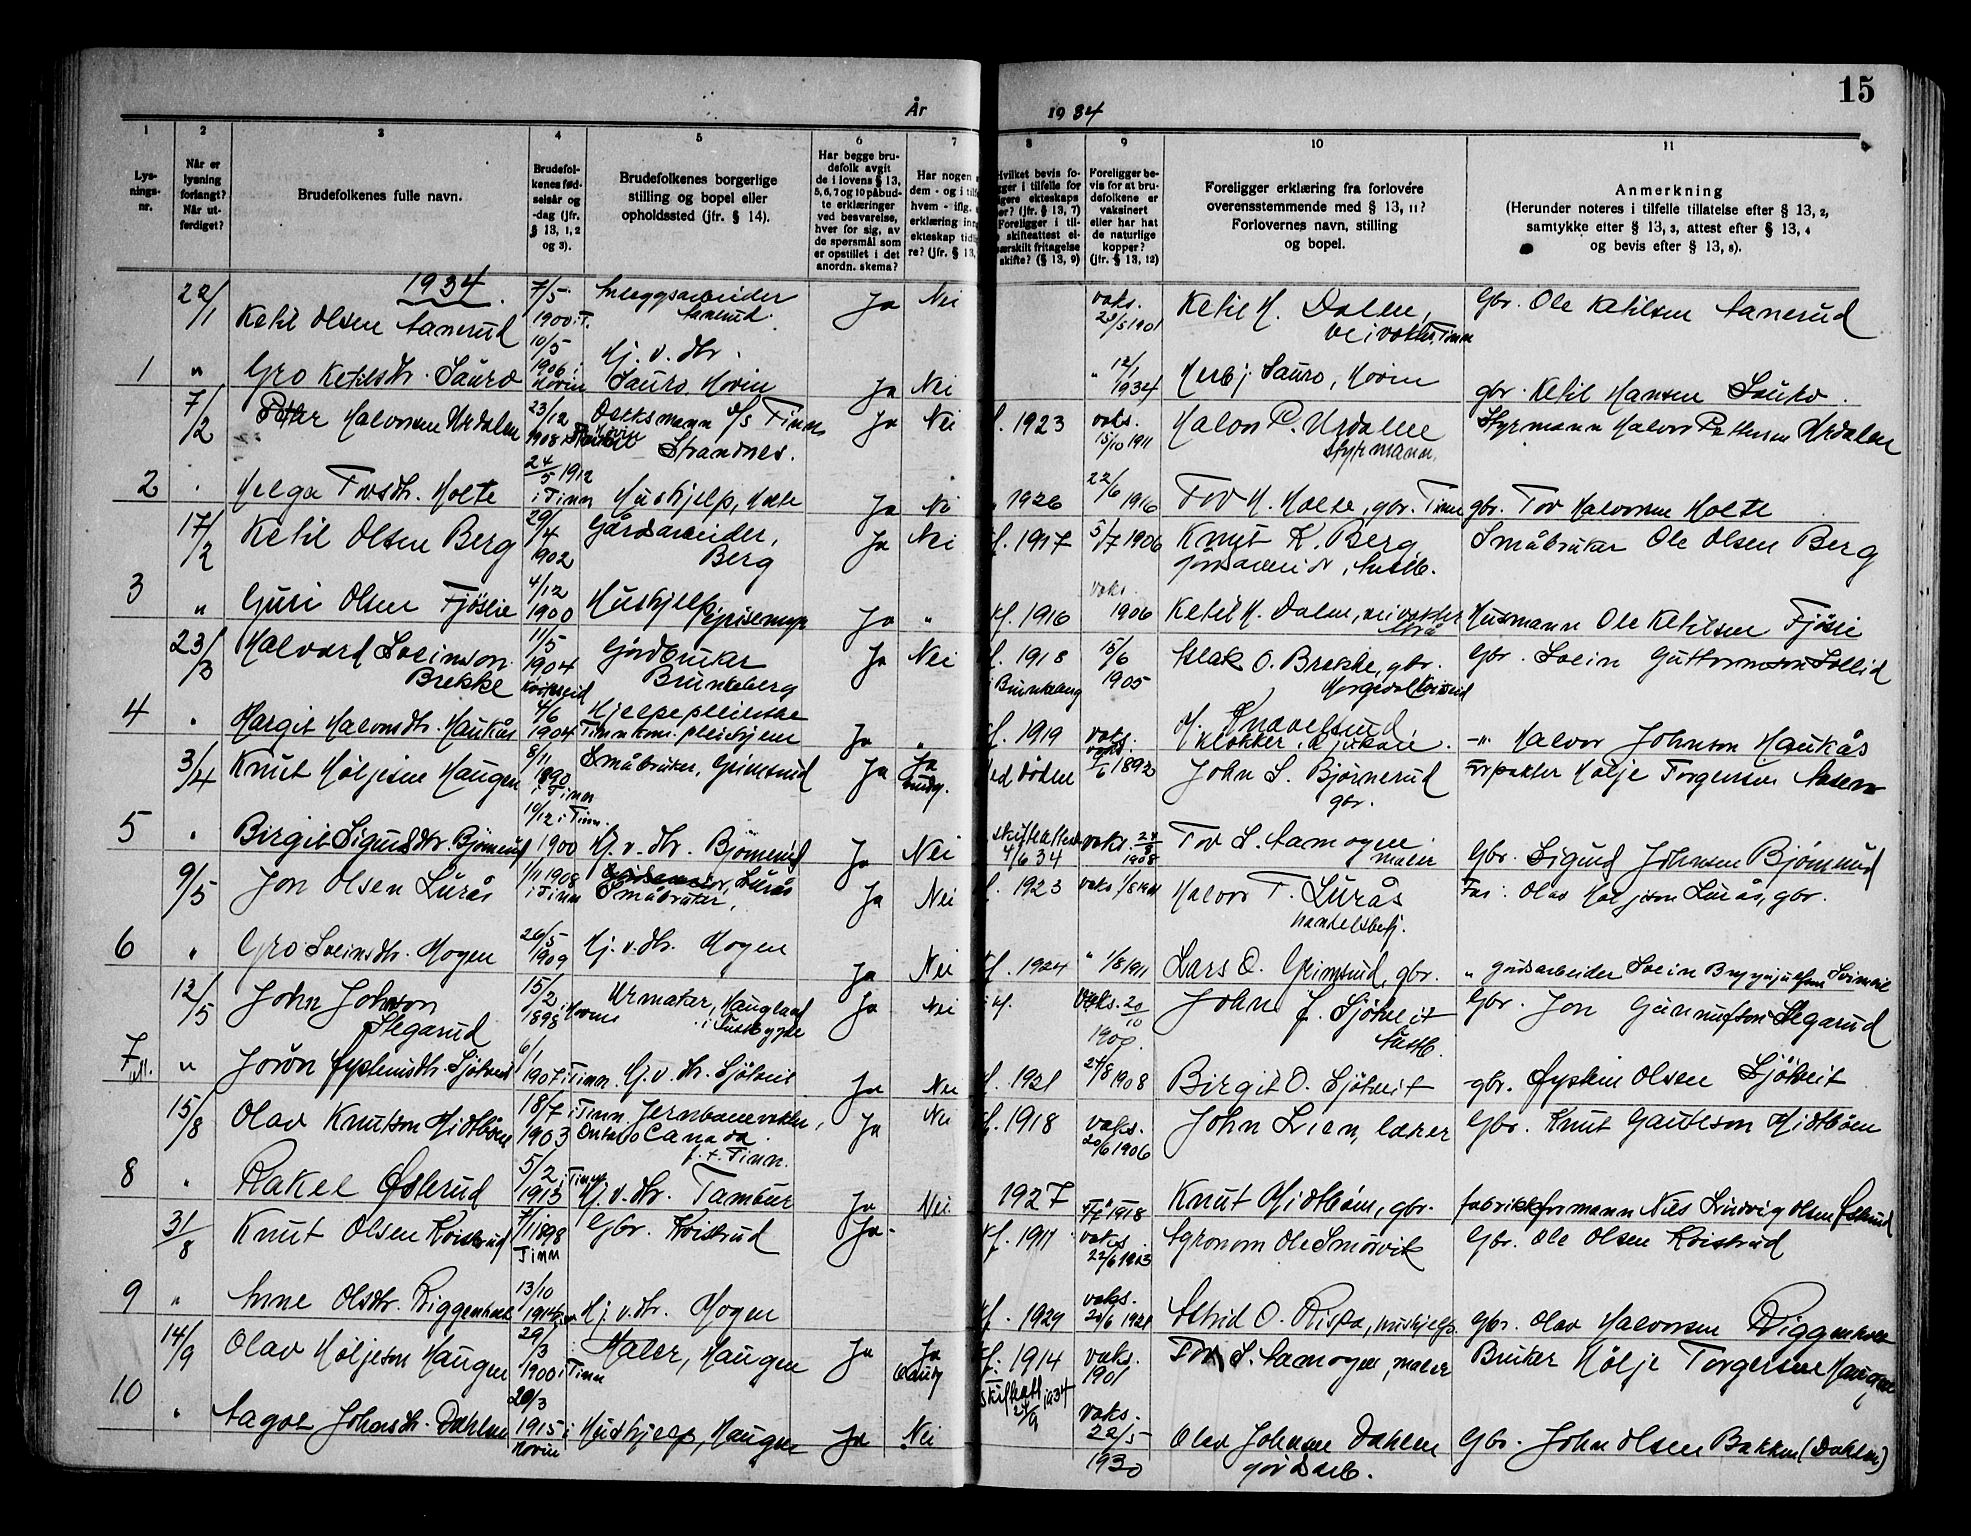 15
År 1934
1 2 3 4 5 6 7 8 9 10 11
Lys-
nings-
nr.
Når er
lysning
forlangt?
Når ut-
ferdiget?
Brudefolkenes fulle navn.
Brudefol-
kenes fød-
selsår og
-dag (jfr.
§ 13, 1, 2
og 3).
Brudefolkenes borgerlige
stilling og bopel eller
opholdssted (jfr. § 14).
Har begge bru-
defolk avgit
de i lovens § 13,
5, 6, 7 og 10 påbud-
te erklæringer
ved besvarelse,
hver for sig, av
de spørsmål som
er opstillet i det
anordn. skema?
Har nogen
dem - og i tilf
hvem - iflg.
erklæring inn
ekteskap tidl
re? (jfr. § 13,
Hvilket bevis fo-
gger i tilfelle for
igere ekteskaps
er? (jfr. § 13, 7)
Foreligger i til-
skifteattest el-
særskilt fritagelse
skifte? (§ 13, 9)
Foreligger be-
vis for at bru-
defolkene er
vaksinert
eller har hat
de naturlige
kopper?
(jfr. § 13, 12)
Foreligger erklæring fra forlovere
overensstemmende med § 13, 11?
Forlovernes navn, stilling
og bopel.
Anmerkning
(Herunder noteres i tilfelle tillatelse efter § 13, 2,
samtykke efter § 13, 3, attest efter § 13, 4
og bevis efter § 13, 8).
1934
22/1 Ketil Olsen Aanerud 7/5 1900 i T. Anleggsarbeider Aanerud Ja Nei vaks. 23/5 1901 Ketil H. Dalen, veivokter, Tinn Gbr. Ole Ketilsen Aanerud
1 " Gro Ketilsdtr. Sauro 10/5 1906 i Hovin Hj. v. dtr. Sauro, Hovin Ja Nei " 12/1 1934 Herbj Sauro, Hovin gbr. Ketil Hansen Sauro.
7/2 Petter Halvorsen Urdalen 23/12 1908 Dekksmann d/s Tinn Strandnes. Ja Nei f. 1923 vaks. 15/10 1911 Halvor P. Urdalen styrmann. Styrmann Halvor Pettersen Urdalen
2 Helga Torsdtr. Holte 24/5 1912 i Tinn Hushjelp, Holte Ja Nei 1926 22/6 1916 Tov H. Holte, gbr. Tinn gbr. Tov Halvorsen Holte
17/2 Ketil Olsen Berg 29/4 1902 Gårdsarbeider, Berg Ja Nei f. 1917 5/7 1906 Knut K. Berg gårdsarbeider, Austb. Småbruker Ole Olsen Berg
3 " Guri Olsen Fjösli 4/12 1900 Hushjelp Ja " kf. 1916 vaks. 1906 Ketil H. Dalen, veivokter Husmann Ole Ketilsen Fjösli
23/3 Halvard Sveinson Brekke 11/5 1904 Kviteseid Gårdbruker Brunkeberg Ja Nei f. 1918 i Brunkeberg 15/6 1905 Aslak O. Brekke, gbr. Morgedal Kviteseid Gbr. Svein Guttormson Sollid
4 " Margit Halvorsdtr. Haukås 4/6 1904 Hjelpepleierske Tinn kom. pleiehjem Ja " f. 1919 vaks. H. Knavelsrud klokker, Rjukan. -"- Halvor Johnson Haukås
3/4 Knut Høljesen Haugen 8/11 1890 i Tinn Småbruker, Grimsrud Ja Ja Ved døden vaks. 1892 John S. Bjørnerud gbr. Forpakter Hølje Torgersen
5 " Birgit Sigurdsdtr. Bjørnerud 19/12 i Tinn. 1900 Hj. v. dtr. Bjørnerud Ja Nei skifteattest 4/6 34 vaks. 1908 Tov S. Aamogen maler Gbr. Sigurd Johnsen Bjørnerud
9/5 Jon Olsen Lurås 1/11 1908 i Tinn Småbruker, Lurås Ja Nei f. 1923 vaks Halvor T. Lurås handelsbetj. Far: Olav Høljeson Lurås, gbr.
6 " Gro Sveinsdtr. Mogen 26/5 1909 Hj. v. dtr. Mogen Ja Nei kf. 1924 " 1/8 1911 Lars O. Grimsrud, gbr. " gårdsarbeider Svein
12/5 John Johnson Stegarud 15/2 1898 i Hovin Urmaker, Haugland i Austbygde Ja Nei vaks. 20/10 1900. John J. Sjötveit Austb. Gbr. Jon Gunnufson Stegarud
7 " Jorån Øysteinsdtr. Sjötveit 6/1 1907 i Tinn. Hj. v. dtr. Sjötveit Ja Nei f. 1921 24/8 1908 Birgit O. Sjötveit gbr. Øystein Olsen Sjötveit
15/8 Olav Knutson Midtbøen 18/7 i Tinn 1903 Jernbanevokter, Ontario Canada f. t. Tinn. Ja Nei f. 1918 vaks. 20/6 1906 John Lien, lærer Gbr. Knut Gauteson Midtbøen
8 " Rakel Østerud 5/2 i Tinn 1913 Hj. v. dtr. Tambur Ja Nei 1927 1918 Knut Midtbøen, gbr. fabrikkformann Nils Ludvig Olsen Østerud
31/8 Knut Olsen Kvistrud 1898 Tinn Gbr. Kvistrud Ja- kf. 1911 vaks. 22/6 1903 Agronom Ole Smörvik Gbr. Ole Olsen Kvistrud
9 " Anne Olsdtr. 13/10 1914 Hj. v. dtr. Mogen kf. 1929 vaks. 20/6 1921 Astrid O. Rispa, hushjelp Gbr. Olav Halvorsen
14/9 Olav Høljeson Haugen 29/3 1900 i Tinn Maler, Haugen Ja Ja kf. 1914 skifteatt 24/9 1934 vaks. 1901 Tov S. Aamogen, maler Bruker Hølje Torgersen Haugen
10 " Aagot Johnsdtr. Dahlen 20/3 1915 i Hovin Hushjelp, Haugen Ja Nei vaks. 22/5 1930 Olav Johnsen Dahlen gårdsarb. Gbr. John Olsen Bakken (Dahlen)